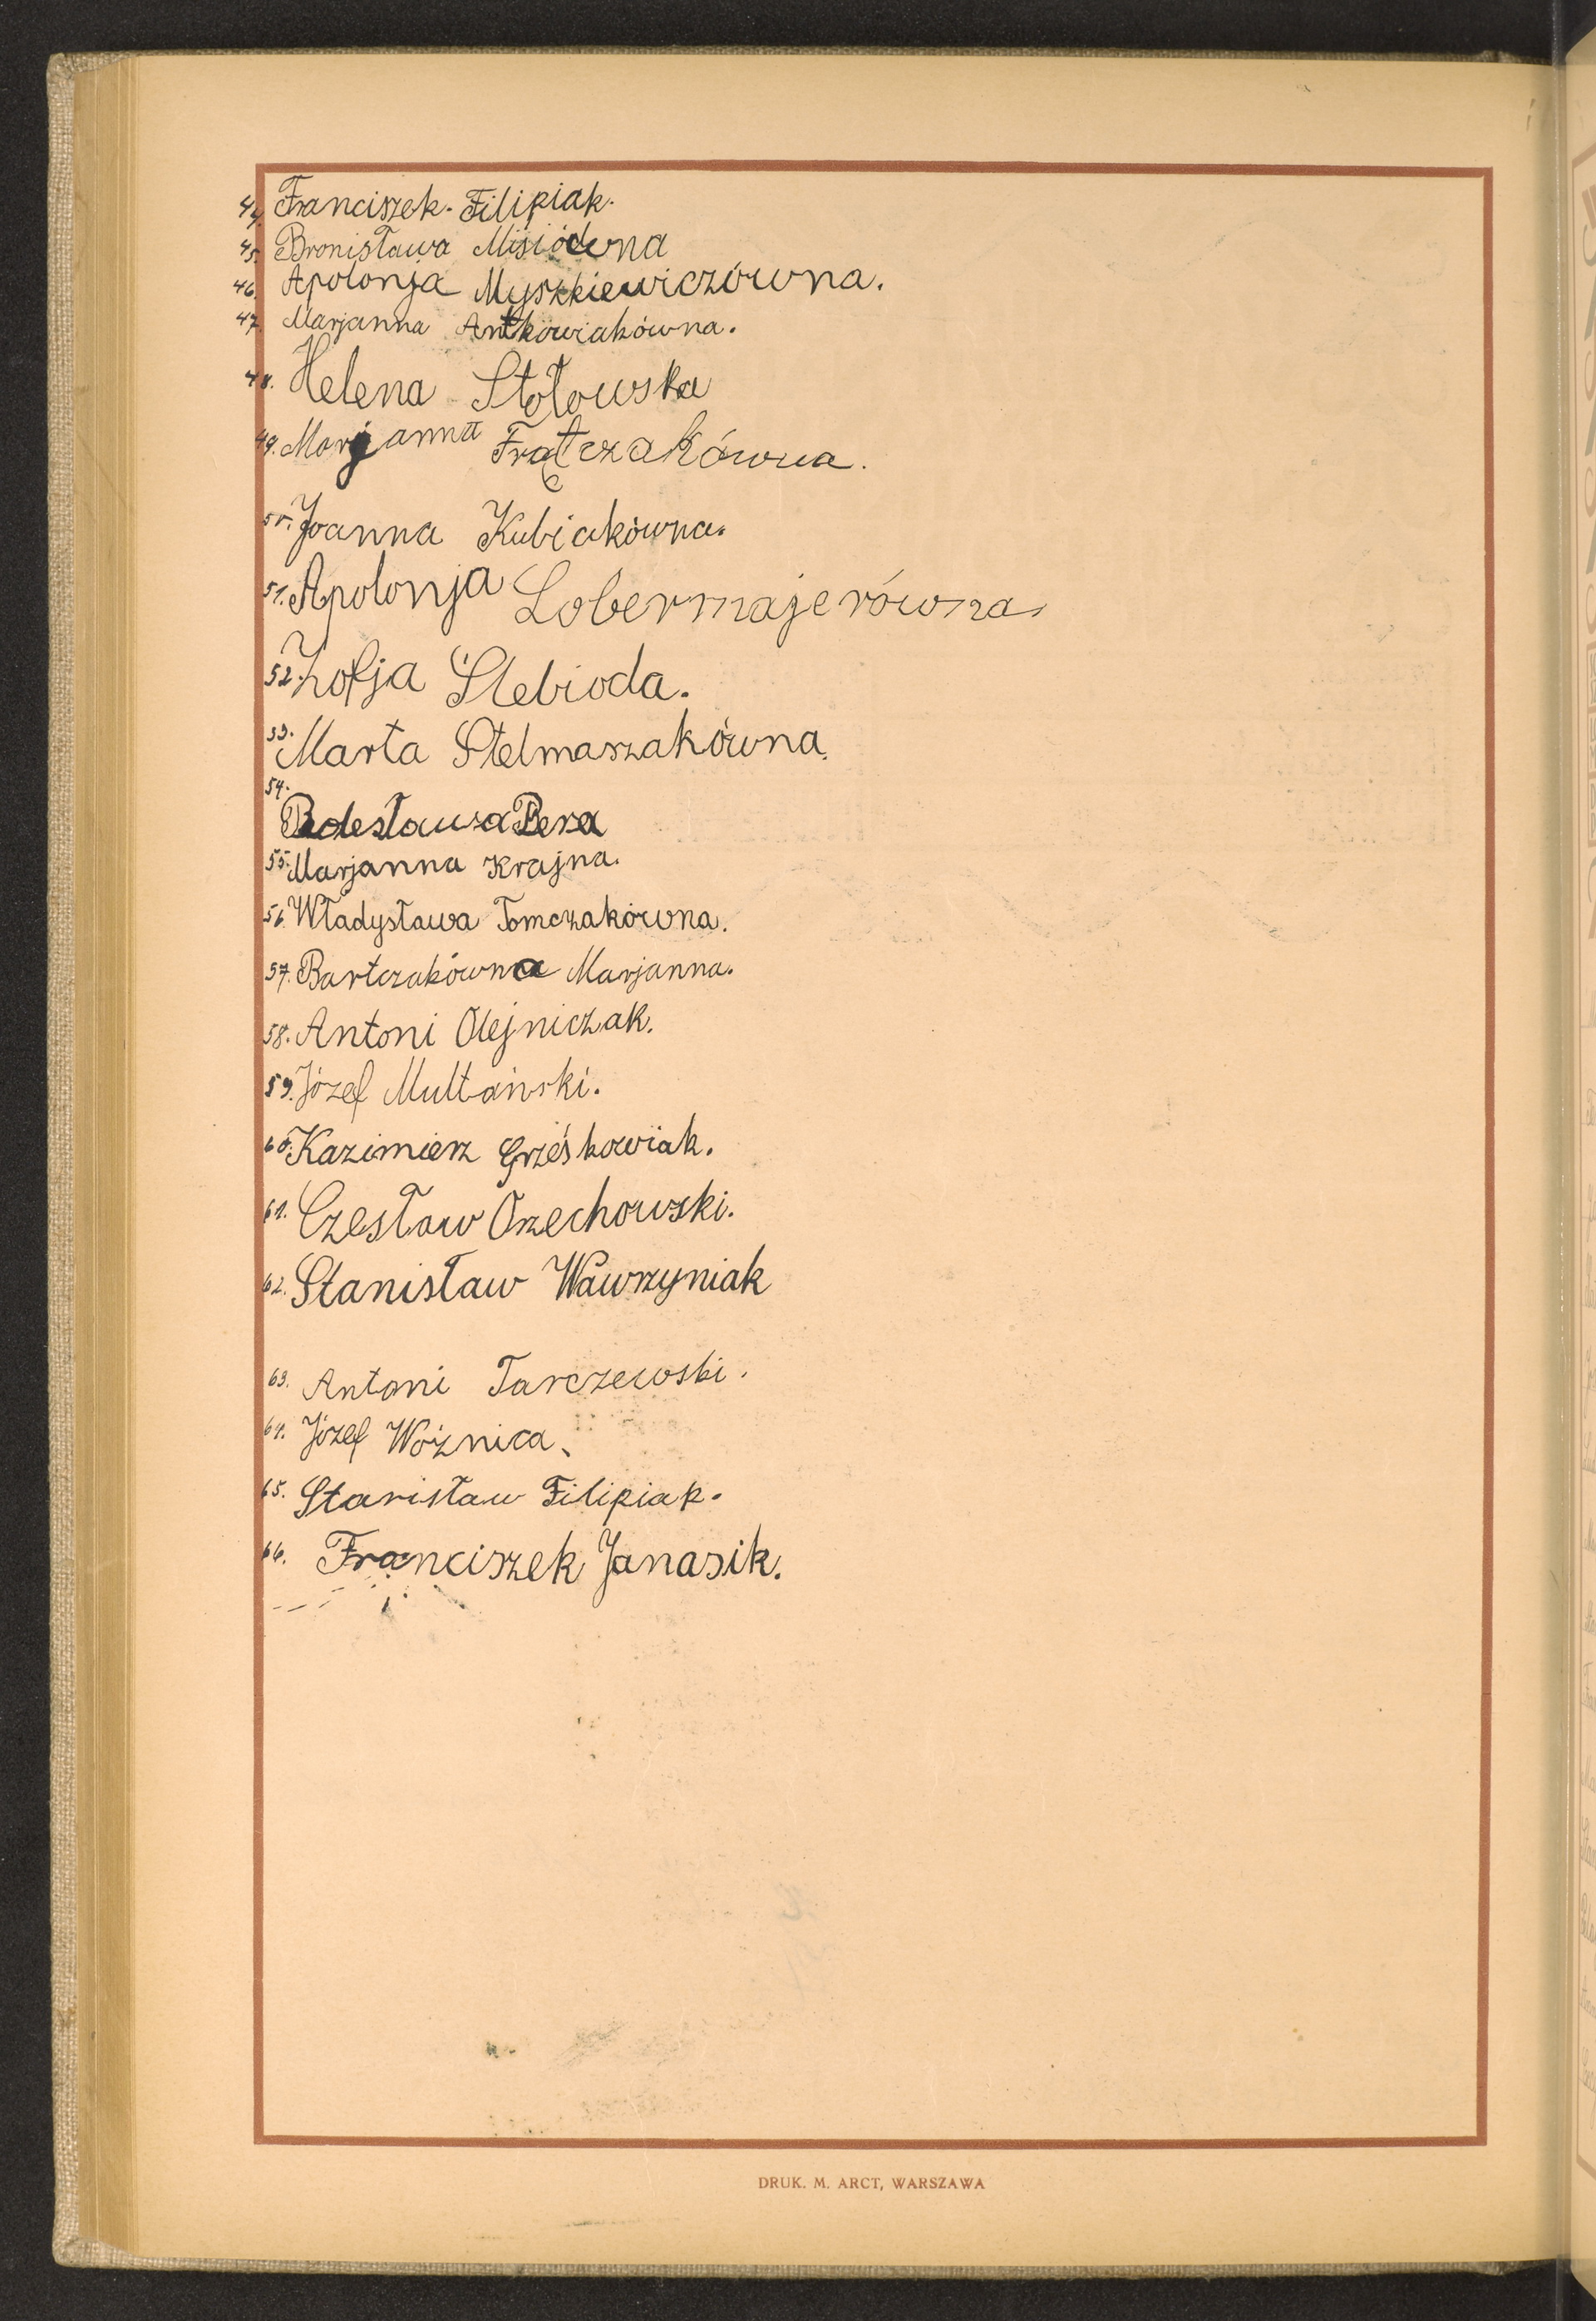 44. Franciszek. Filipiak.
45. Bronisława Misiówna
46. Apolonja Myszkiewiczówna.
47. Marjanna Antkowiakówna.
48. Helena Stołowska
49. Marjanna Frątczakówna.
50. Joanna Kubiakówna.
51. Apolonja Lobermajerówna.
52. Zofja Ślebioda.
53. Marta Stelmaszakówna.
54.
Bolesława Bera
55. Marjanna Krajna.
56. Władysława Tomczakówna.
57. Bartczakówna Marjanna.
58. Antoni Olejniczak.
59. Józef Multański.
60. Kazimierz Grześkowiak.
61. Czesław Orzechowski.
62. Stanisław Wawrzyniak
63. Antoni Tarczewski.
64. Józef Woźnica.
65. Stanisław Filipiak.
66. Franciszek Janasik.
DRUK. M. ARCT, WARSZAWA